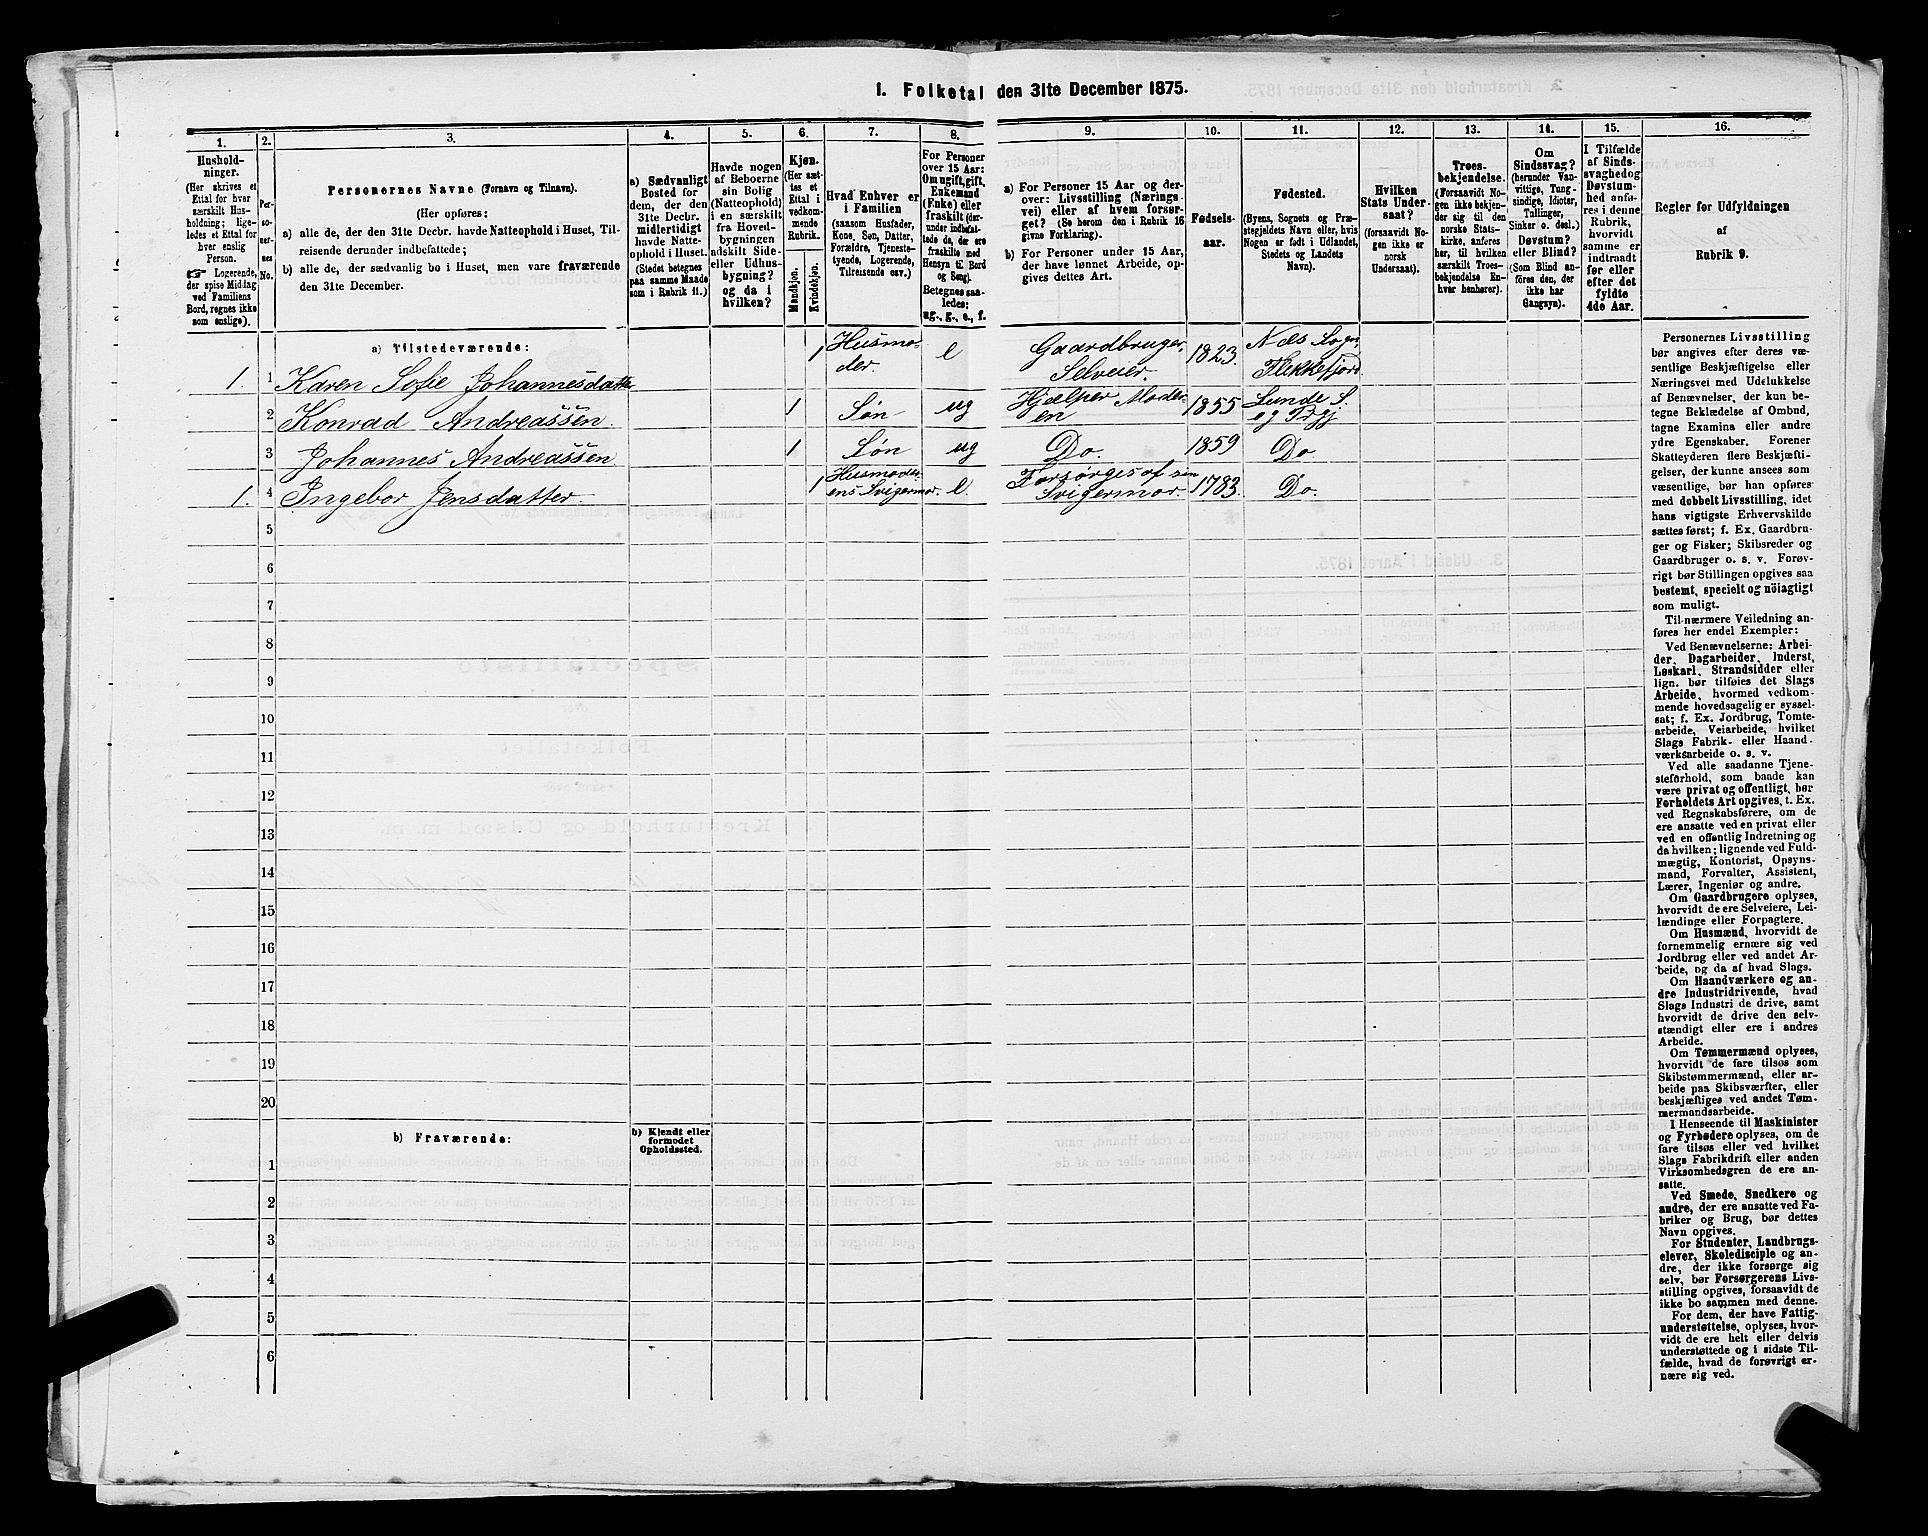 1. Folketal den 31te December 1875.
1.
Hushold-
ninger.
(Her skrives et
Ettal for hver
særskilt Hus-
holdning; lige-
ledes et Ettal for
hver enslig
Person.
☞ Logerende,
der spise Middag
ved Familiens
Bord, regnes ikke
som enslige).
2.
Per-
so-
ner-
nes
No.
3.
Personernes Navne (Fornavn og Tilnavn).
(Her opføres:
a) alle de, der den 31te Decbr. havde Natteophold i Huset, Til-
reisende derunder indbefattede;
b) alle de, der sædvanlig bo i Huset, men vare fraværende
den 31te December.
4.
a) Sædvanligt
Bosted for
dem, der den
31te Decbr.
midlertidigt
havde Natte-
ophold i Huset.
(Stedet betegnes
paa samme Maade
som i Rubrik 11.)
5.
Havde nogen
af Beboerne
sin Bolig
(Natteophold)
i en særskilt
fra Hoved-
bygningen
adskilt Side-
eller Udhus-
bygning?
og da i
hvilken?
6.
Kjøn.
(Her sæt-
tes et
Ettal i
vedkom-
mende
Rubrik.
Mandkjøn.
Kvindekjøn.
7.
Hvad Enhver er
i Familien
(saasom Husfader,
Kone, Søn, Datter,
Forældre, Tjeneste-
tyende, Logerende,
Tilreisende osv.)
8.
For Personer
over 15 Aar:
Om ugift, gift,
Enkemand
(Enke) eller
fraskilt (der-
under indbefat-
tede de, der ere
fraskilte med
Hensyn til Bord
og Seng).
Betegnes saa-
ledes:
ug., g., e., f.
9.
a) For Personer 15 Aar og der-
over: Livsstilling (Nærings-
vei) eller af hvem forsør-
get? (Se herom den i Rubrik 16
givne Forklaring).
b) For Personer under 15 Aar,
der have lønnet Arbeide, op-
gives dettes Art.
10.
Fødsels-
aar.
11.
Fødested.
(Byens, Sognets og Præ-
stegjeldets Navn eller, hvis
Nogen er født i Udlandet,
Stedets og Landets
Navn).
12.
Hvilken
Stats Under-
saat?
(forsaavidt No-
gen ikke er
norsk
Undersaat).
13.
Troes-
bekjendelse.
(Forsaavidt No-
gen ikke bekjen-
der sig til den
norske Stats-
kirke, anføres
her, til hvilken
særskilt Troes-
bekjendelse En-
hver henhører).
14.
Om
Sindssvag?
(herunder Van-
vittige, Tung-
sindige, Idioter,
Tullinger,
Sinker o. desl.)
Døvstum?
eller Blind?
(Som Blind an-
føres den, der
ikke har
Gangsyn).
15.
I Tilfælde
af Sinds-
svaghed og
Døvstum-
hed anfø-
res i denne
Rubrik,
hvorvidt
samme er
indtraadt
før eller
efter det
fyldte
4de Aar.
16.
Regler for Udfyldningen
af
Rubrik 9.
a) Tilstedeværende:
1. 1 Karen Sofie Johannesdatter 1 Husmo-
der. e Gaardbruger,
Selveier. 1823. Næs Sogn,
Flekkefjord
2 Konrad Andreassen. 1 Søn ug Hjælper Moder-
en 1855 Lunde S.
og Prgj
3 Johannes Andreassen 1 Søn ug Do. 1859 Do
1. 4 Ingebor Jensdatter. 1 Husmoder-
ens Svigermor. e. Forsørges af sin
Svigermor. 1783. Do.
5
6
7
8
9
10
11
12
13
14
15
16
17
18
19
20
b) Fraværende:
b) Kjendt eller
formodet
Opholdssted.
1
2
3
4
5
6
Personernes Livsstilling
bør angives efter deres væ-
sentlige Beskjæftigelse eller
Næringsvei med Udelukkelse
af Benævnelser, der kun be-
tegne Beklædelse af Ombud,
tagne Examina eller andre
ydre Egenskaber. Forener
Skatteyderen flere Beskjæfti-
gelser, der kunne ansees som
væsentlige, bør han opføres
med dobbelt Livsstilling, idet
hans vigtigste Erhvervskilde
sættes først; f. Ex. Gaardbru-
ger og Fisker; Skibsreder og
Gaardbruger o. s. v. Forøv-
rigt bør Stillingen opgives saa
bestemt, specielt og nöiagtigt
som muligt.
Til nærmere Veiledning an-
føres her endel Exempler:
Ved Benævnelserne: Arbei-
der, Dagarbeider, Inderst,
Løskarl, Strandsidder eller
lign. bør tilføies det Slags
Arbeide, hvormed vedkom-
mende hovedsagelig er syssel-
sat; f. Ex. Jordbrug, Tomte-
arbeide, Veiarbeide, hvilket
Slags Fabrik- eller Haand-
værksarbeide o. s. v.
Ved alle saadanne Tjene-
steforhold, som baade kan
være privat og offentligt, bør
Forholdets Art opgives, t. Ex.
ved Regnskabsførere, om de
ere ansatte ved en privat eller
ved en offentlig Indretning og
da hvilken; lignende ved Fuld-
mægtig, Kontorist, Opsyns-
mand, Forvalter, Assistent,
Lærer, Ingeniør og andre.
Om Gaardbrugere oplyses,
hvorvidt de ere Selveiere, Lei-
lændinge eller Forpagtere.
Om Husmænd, hvorvidt de
fornemmelig ernære sig ved
Jordbrug eller ved andet Ar-
beide, og da af hvad Slags.
Om Haandværkere og an-
dre Industridrivende, hvad
Slags Industri de drive, samt
hvorvidt de drive den selv-
stændigt eller ere i andres
Arbeide.
Om Tømmermænd oplyses,
hvorvidt de fare tilsøs som
Skibstømmermænd, eller ar-
beide paa Skibsværfter, eller
beskjæftiges ved andet Tøm-
mermandsarbeide.
I Henseende til Maskinister
og Fyrbødere oplyses, om de
fare tilsøs eller ved hvilket
Slags Fabrikdrift eller anden
Virksomhedsgren de ere an-
satte.
Ved Smede, Snedkere og
andre, der ere ansatte ved Fa-
briker og Brug, bør dettes
Navn opgives.
For Studenter, Landbrugs-
elever, Skoledisciple og an-
dre, der ikke forsørge sig
selv, bør Forsørgerens Livs-
stilling opgives, forsaavidt de
ikke bo sammen med denne.
For dem, der have Fattig-
understøttelse, oplyses, hvor-
vidt de ere helt eller delvis
understøttede og i sidste Til-
fælde, hvad de forøvrigt er-
nære sig ved.